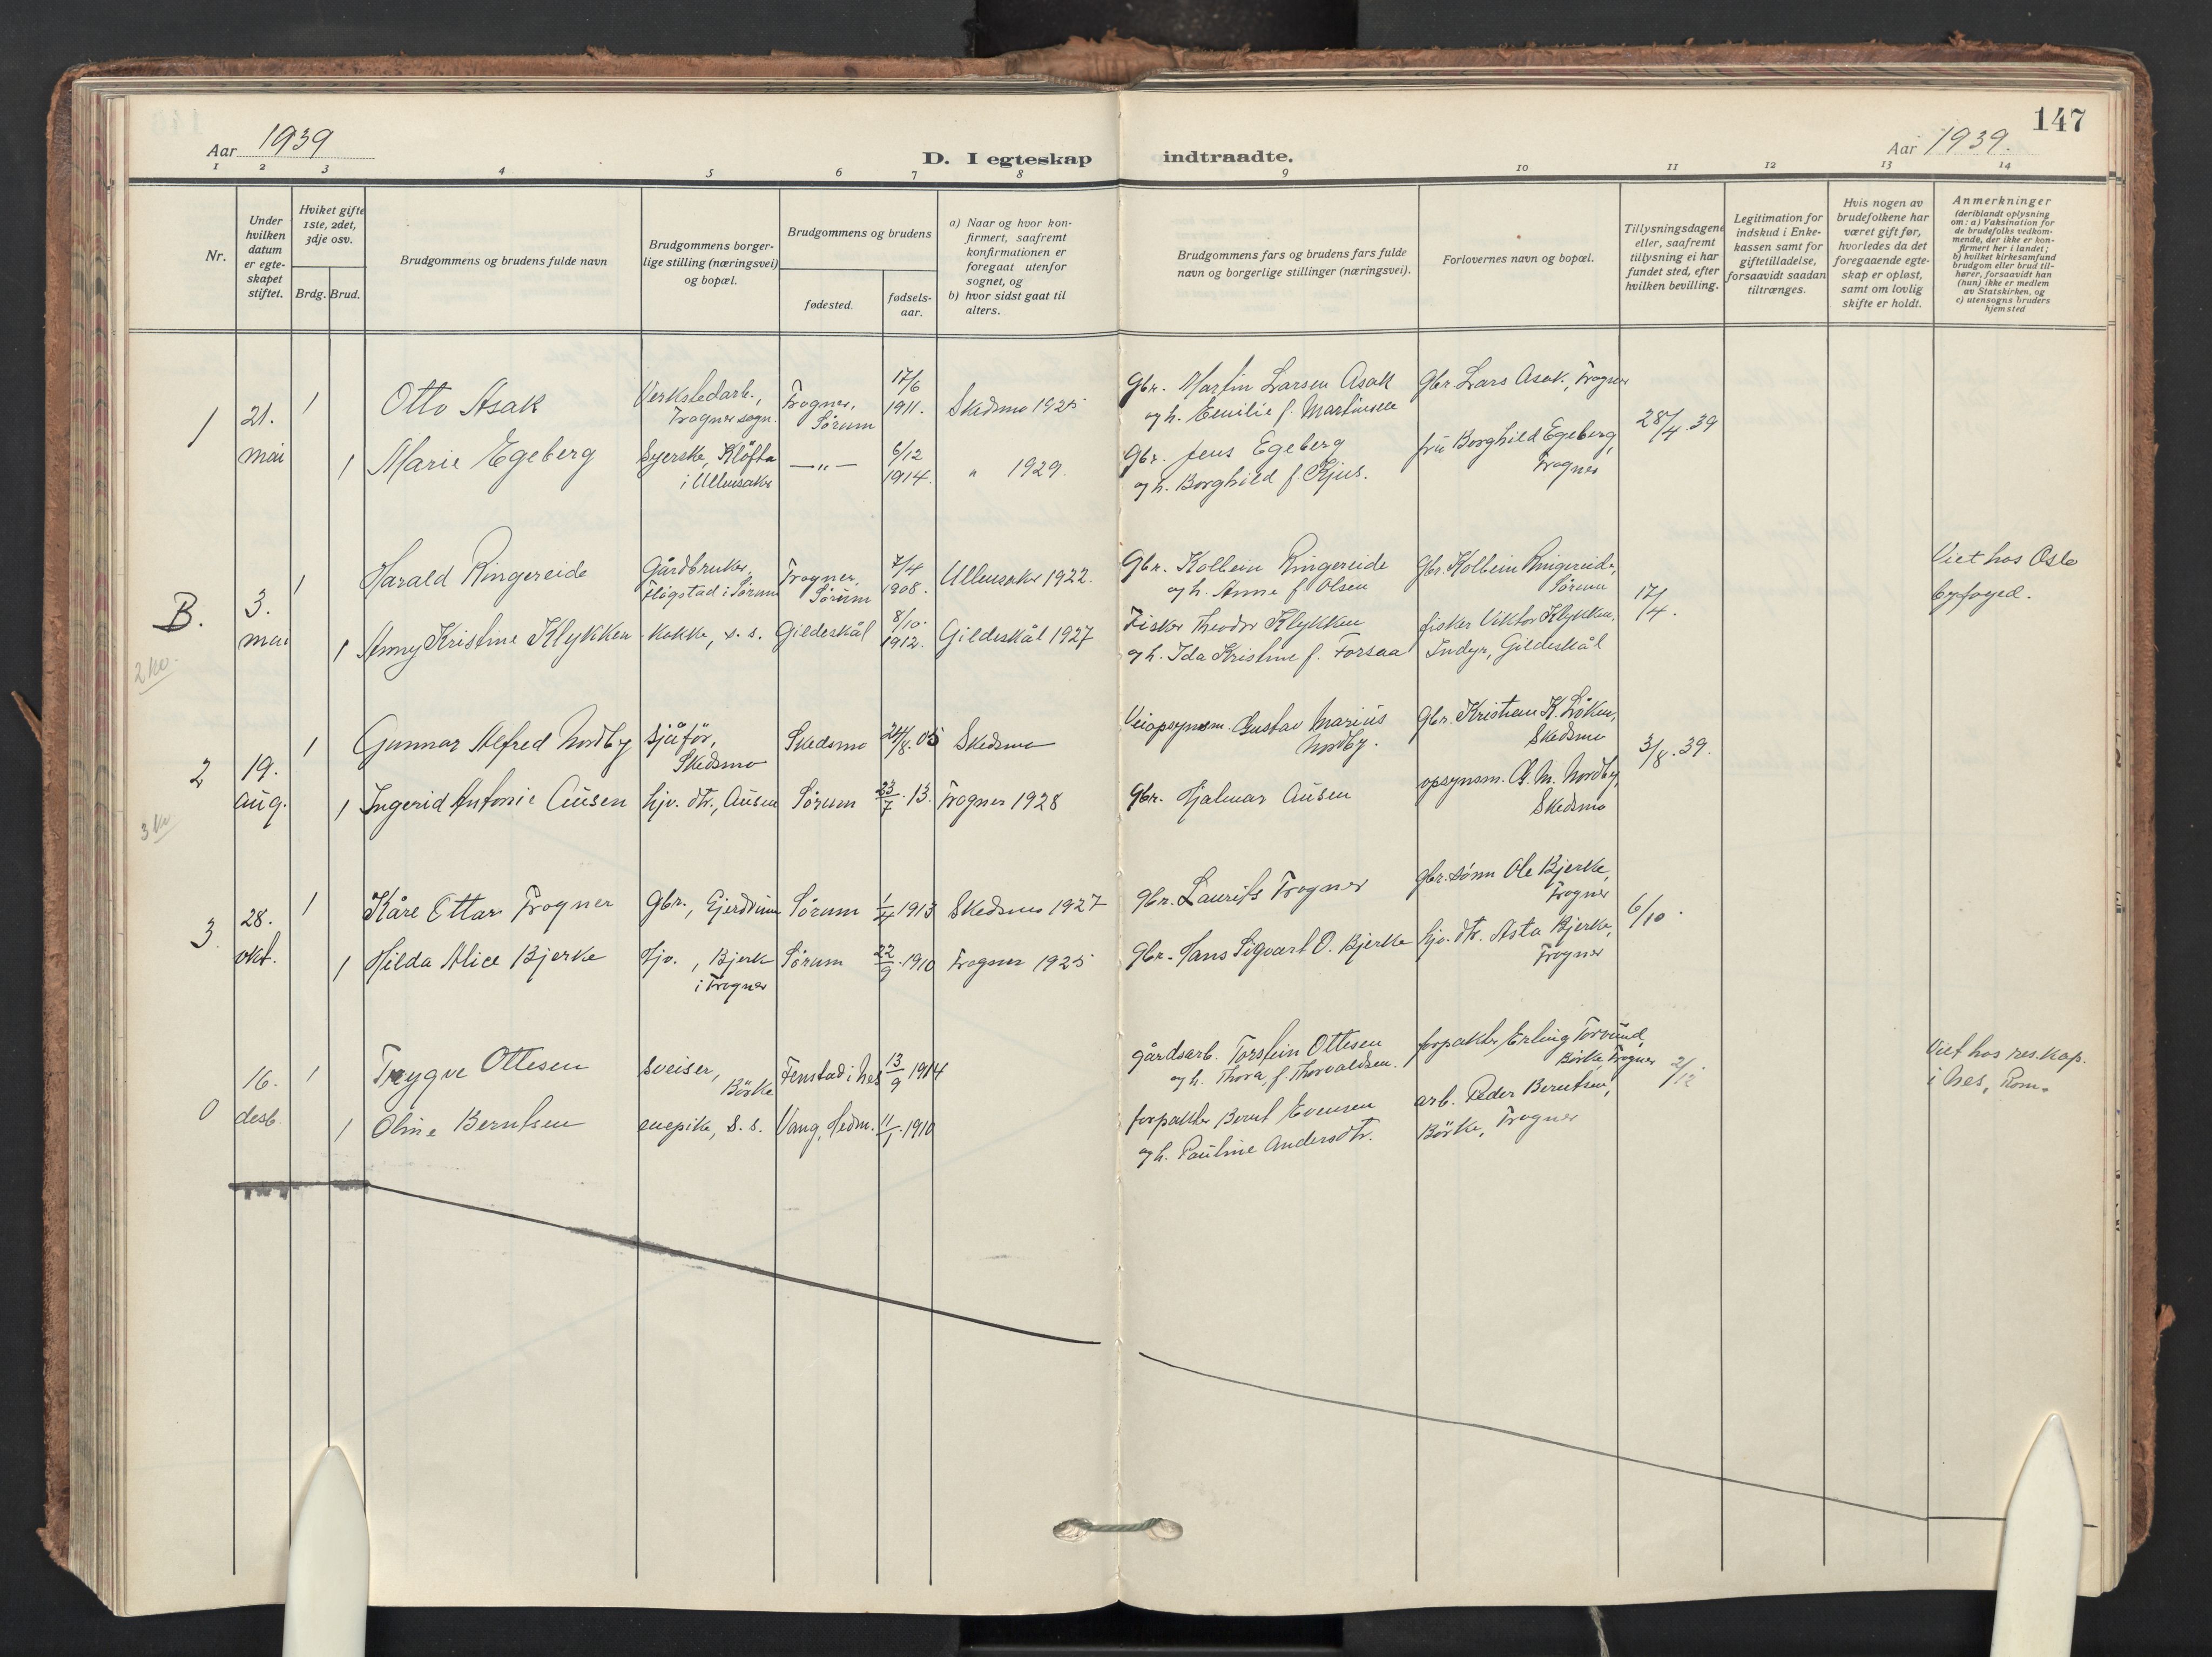 147
Aar 1939
D. I egteskap indtraadte.
Aar 1939.
1 2 3 4 5 6 7 8 9 10 11 12 13 14
Nr.
Under hvilken datum er egte-skapet stiftet.
Hviket gifte 1ste, 2det, 3dje osv.
Brdg. Brud.
Brudgommens og brudens fulde navn
Brudgommens borger-lige stilling (næringsvei) og bopæl.
Brudgommens og brudens
fødested.
fødsels-aar.
a) Naar og hvor kon-firmert, saafremt konfirmationen er foregaat utenfor sognet, og
b) hvor sidst gaat til alters.
Brudgommens fars og brudens fars fulde navn og borgerlige stillinger (næringsvei).
Forlovernes navn og bopæl.
Tillysningsdagene eller, saafremt tillysning ei har fundet sted, efter hvilken bevilling.
Legitimation for indskud i Enke-kassen samt for giftetilladelse, forsaavidt saadan tiltrænges.
Hvis nogen av brudefolkene har været gift før, hvorledes da det foregaaende egte-skap er opløst, samt om lovlig skifte er holdt.
Anmerkninger
(deriblandt oplysning om: a) Vaksination for de brudefolks vedkom-mende, der ikke er kon-firmert her i landet; b) hvilket kirkesamfund brudgom eller brud til-hører, forsaavidt han (hun) ikke er medlem av Statskirken, og c) utensogns bruders hjemsted
1 21. mai
1 Otto Asak
Verkstedarb., Frogner sogn.
Frogner, Sørum
17/6 1911.
Skedsmo 1925
Gbr. Martin Larsen Asak
og h. Emilie f. Martinsen
Gbr. Lars Asak, Frogner
28/4.39
1 Marie Egeberg
Syerske, Kløfta i Ullensaker
—"—
6/12 1914.
" 1929.
Gbr. Jens Egeberg
og h. Borghild f. Kjus.
fru Borghild Egeberg, Frogner
B. 3. mai
2 kv.
1 Harald Ringereide
Gårdbruker, Flogstad i Sørum
Frogner, Sørum
7/4 1908.
Ullensaker 1922.
Gbr. Kolbein Ringereide
og h. Anne f. Olsen
Gbr. Kolbein Ringereide, Sørum
17/4.
Viet hos Oslo
byfoged.
1 Anny Kristine Klykken
Kokke, s. s.
Gildeskål
8/10. 1912.
Gildeskål 1927
Fisker Theodor Klykken
og h. Ida Kristine f. Forsaa
fisker Viktor Klykken,
Indyr, Gildeskål
2 19. aug.
1 Gunnar Alfred Nordby
sjåfør, Skedsmo
Skedsmo
24/8.05
Skedsmo
Veiopsynsm. Gustav Marius Nordby.
Gbr. Kristian K. Løken, Skedsmo
3/8.39.
1 Ingerid Antonie Ausen
hjv. dtr., Ausen
Sørum
23/7.13.
Frogner 1928
Gbr. Hjalmar Ausen
opsynsm. G. M. Nordby, Skedsmo
3 28. okt.
1 Kåre Ottar Frogner
Gbr., Gjerdrum
Sørum
1/4 1913
Skedsmo 1927
Gbr. Laurits Frogner
gbr. sønn Ole Bjerke, Frogner
6/10.
1 Hilda Alice Bjerke
Hjv., Bjerk i Frogner
Sørum
22/9.1910
Frogner 1925
Gbr. Hans Sigvart O. Bjerke
hjv. dtr. Asta Bjerke, Frogner
0 16. desb.
1 Trygve Ottesen
sveiser, Børke
Fenstad i Nes
13/9 1914
gårdsarb. Torstein Ottesen
og h. Thora, f. Thorvaldsen.
forpakter Erling Torvund, Børke, Frogner
2/12
Viet hos res. kap.
i Nes, Rom.
1 Oline Berntsen
enepike, s. s.
Vang, Hedm.
11/1.1910
forpakter Bernt Evensen
og h. Pauline Andersdtr.
arb. Peder Berntsen,
Børke, Frogner